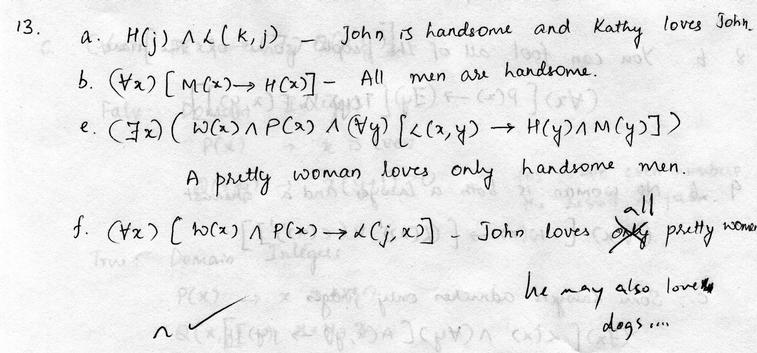 13. a. H(j) ∧ L(k,j) – John is handsome and Kathy loves John.
b. (∀x) [M(x) → H(x)] – All men are handsome.
e. (∃x) (W(x) ∧ P(x) ∧ (∀y) [L(x,y) → H(y) ∧ M(y)])
A pretty woman loves only handsome men.
all
f. (∀x) [W(x) ∧ P(x) → L(j,x)] – John loves only pretty women
he may also love
dogs ...